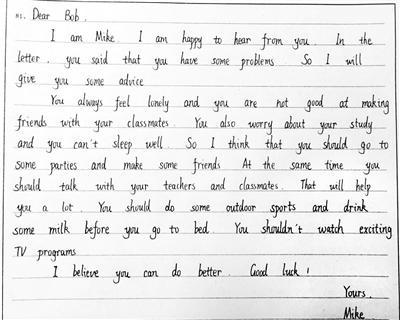 81. Dear Bob.
I am Mike. I am happy to hear from you. In the
letter. you said that you have some problems. So I will
give you some advice
You always feel lonely and you are not good at making
friends with your classmates. You also worry about your study
and you can't sleep well. So I think that you should go to
some parties and make some friends. At the same time you
should talk with your teachers and classmates. That will help
you a lot. You should do some outdoor sports and drink
some milk before you go to bed. You shouldn't watch exciting
TV programs
I believe you can do better. Good luck!
Yours.
Mike